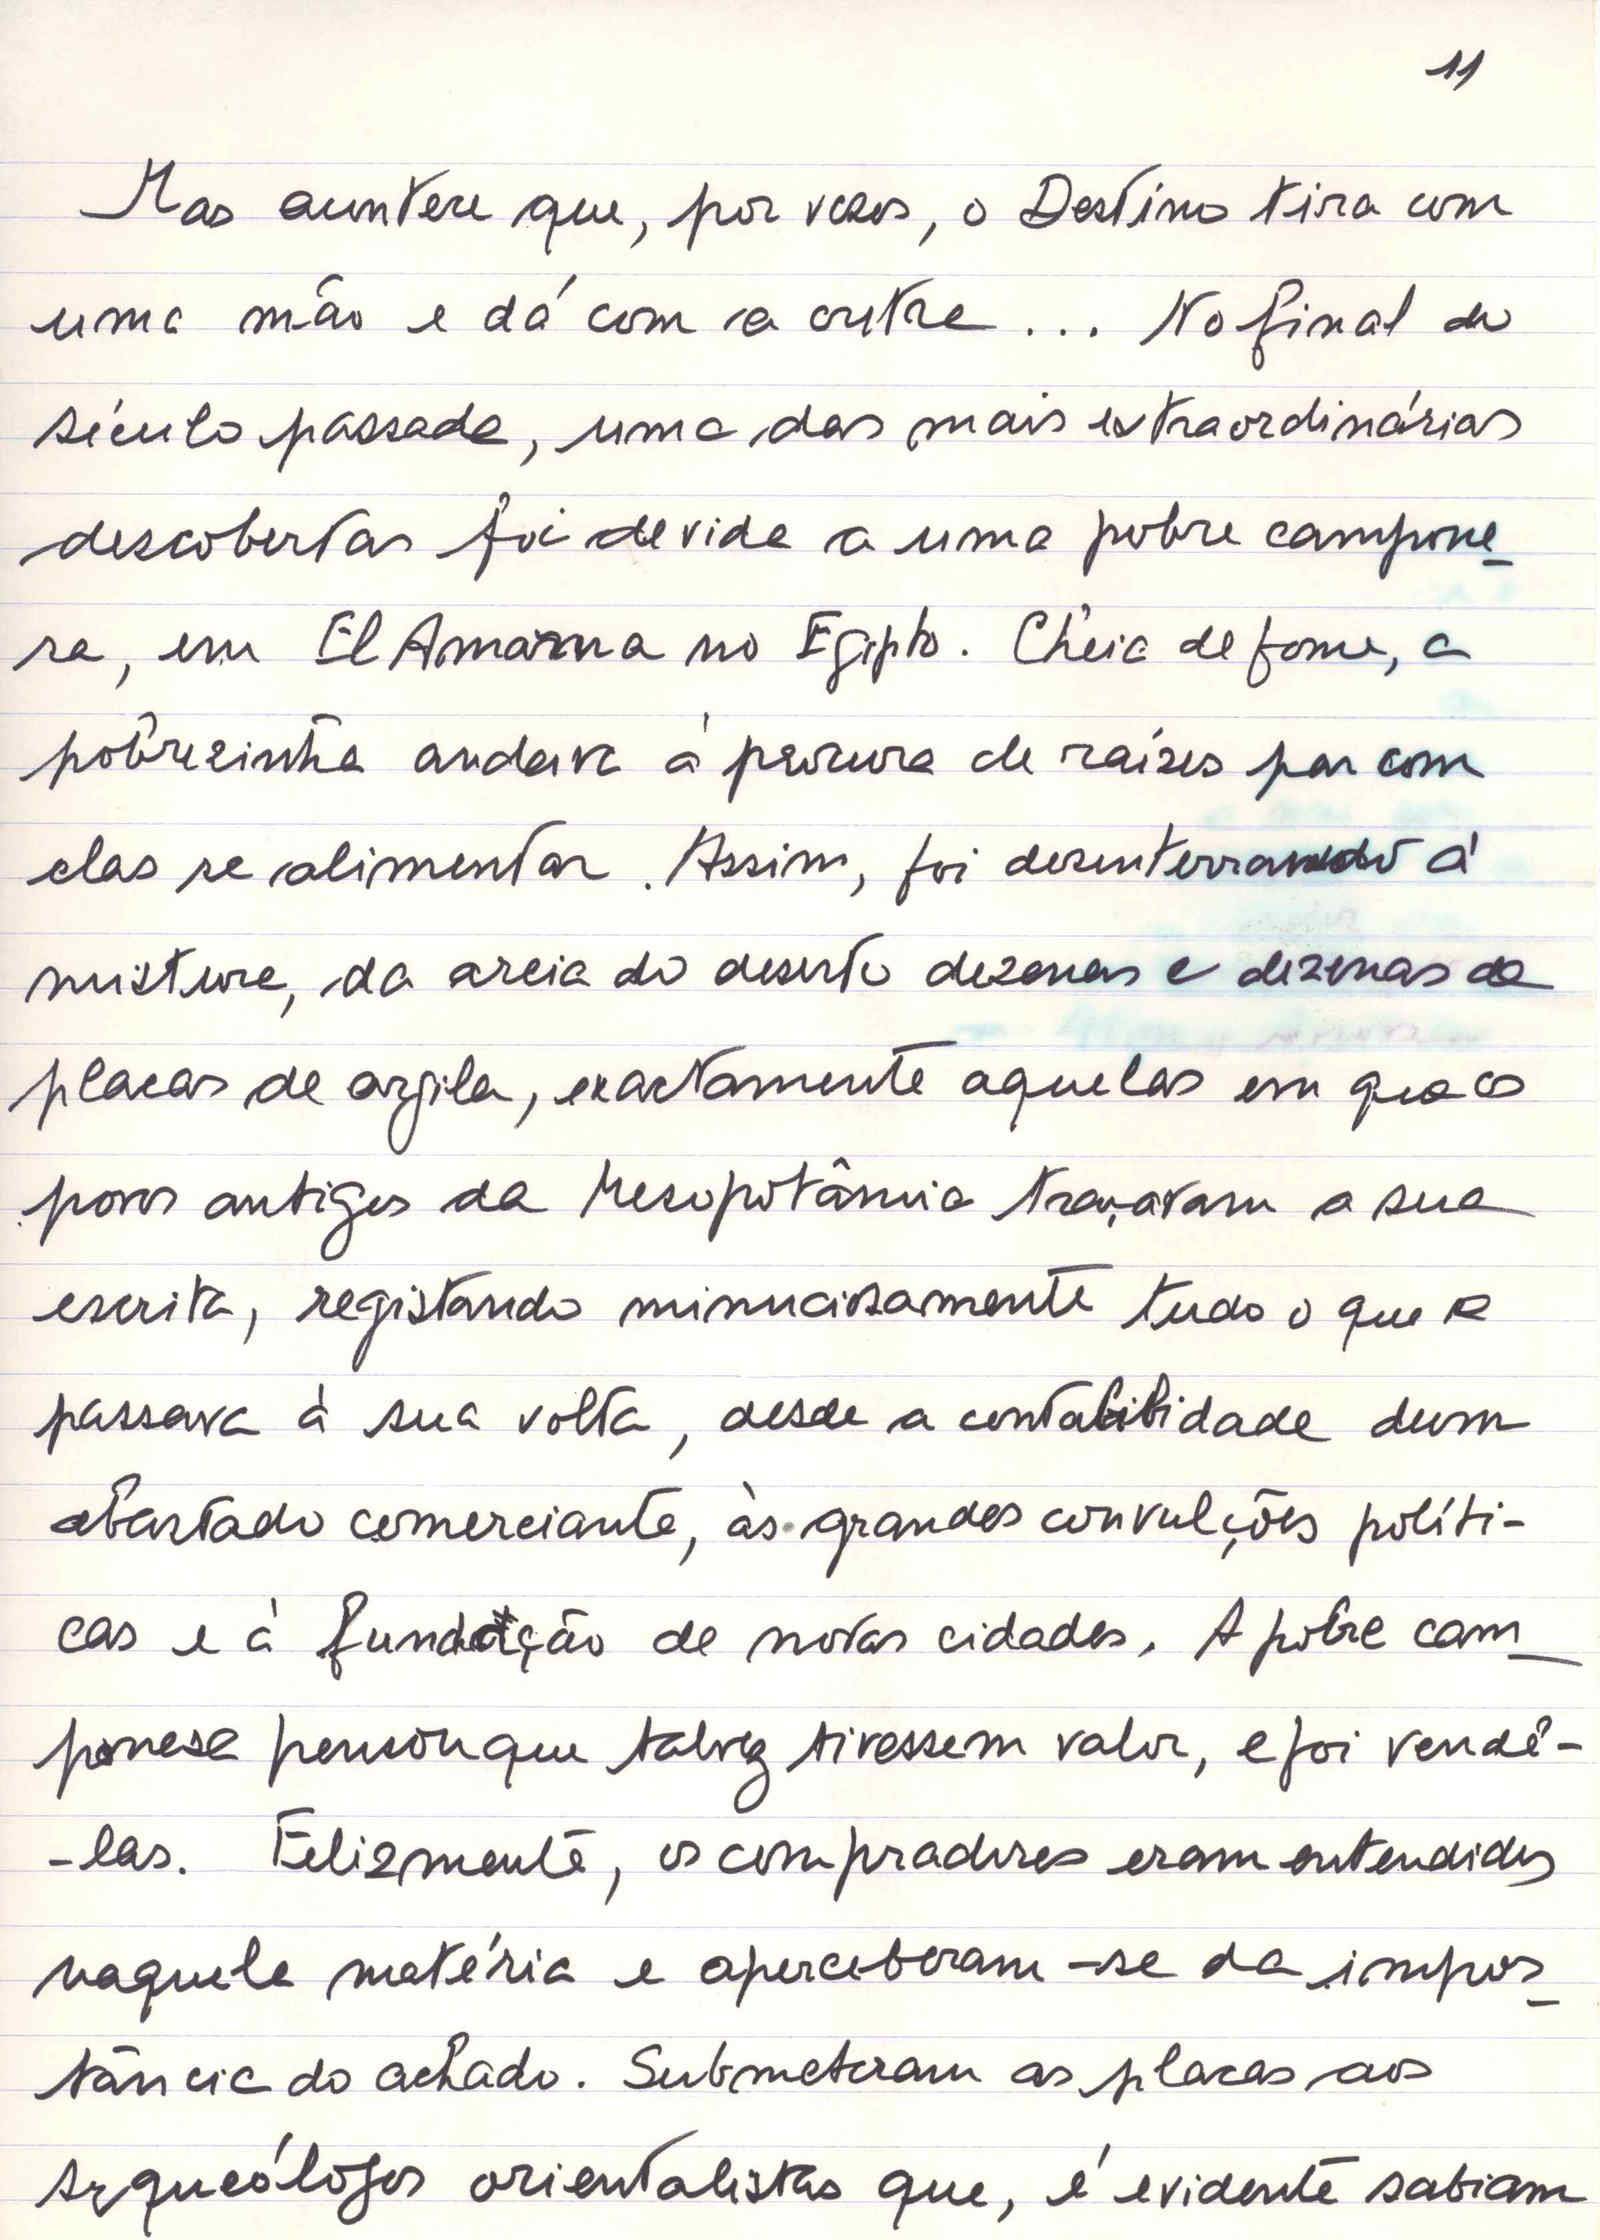 11
Mas acontece que, por vezes, o Destino tira com
uma mão e dá com a outra ... No final do
século passado, uma das mais extraordinárias
descobertas foi devida a uma pobre campone-
sa, em El Amarna no Egipto. Cheia de fome, a
pobrezinha andava à procura de raízes para com
elas se alimentar. Assim, foi desenterrando à
mistura, da areia do deserto dezenas e dezenas de
placas de argila, exactamente aquelas em que os
povos antigos da Mesopotâmia traçavam a sua
escrita, registando minuciosamente tudo o que se
passava à sua volta, desde a contabilidade dum
abastado comerciante, às grandes convulções políti-
cas e à fundação de novas cidades. A pobre cam-
ponesa pensou que talvez tivessem valor, e foi vendê-
-las. Felizmente, os compradores eram entendidos
naquela matéria e aperceberam-se da impor-
tância do achado. Submeteram as placas aos
arqueólogos orientalistas que, é evidente sabiam